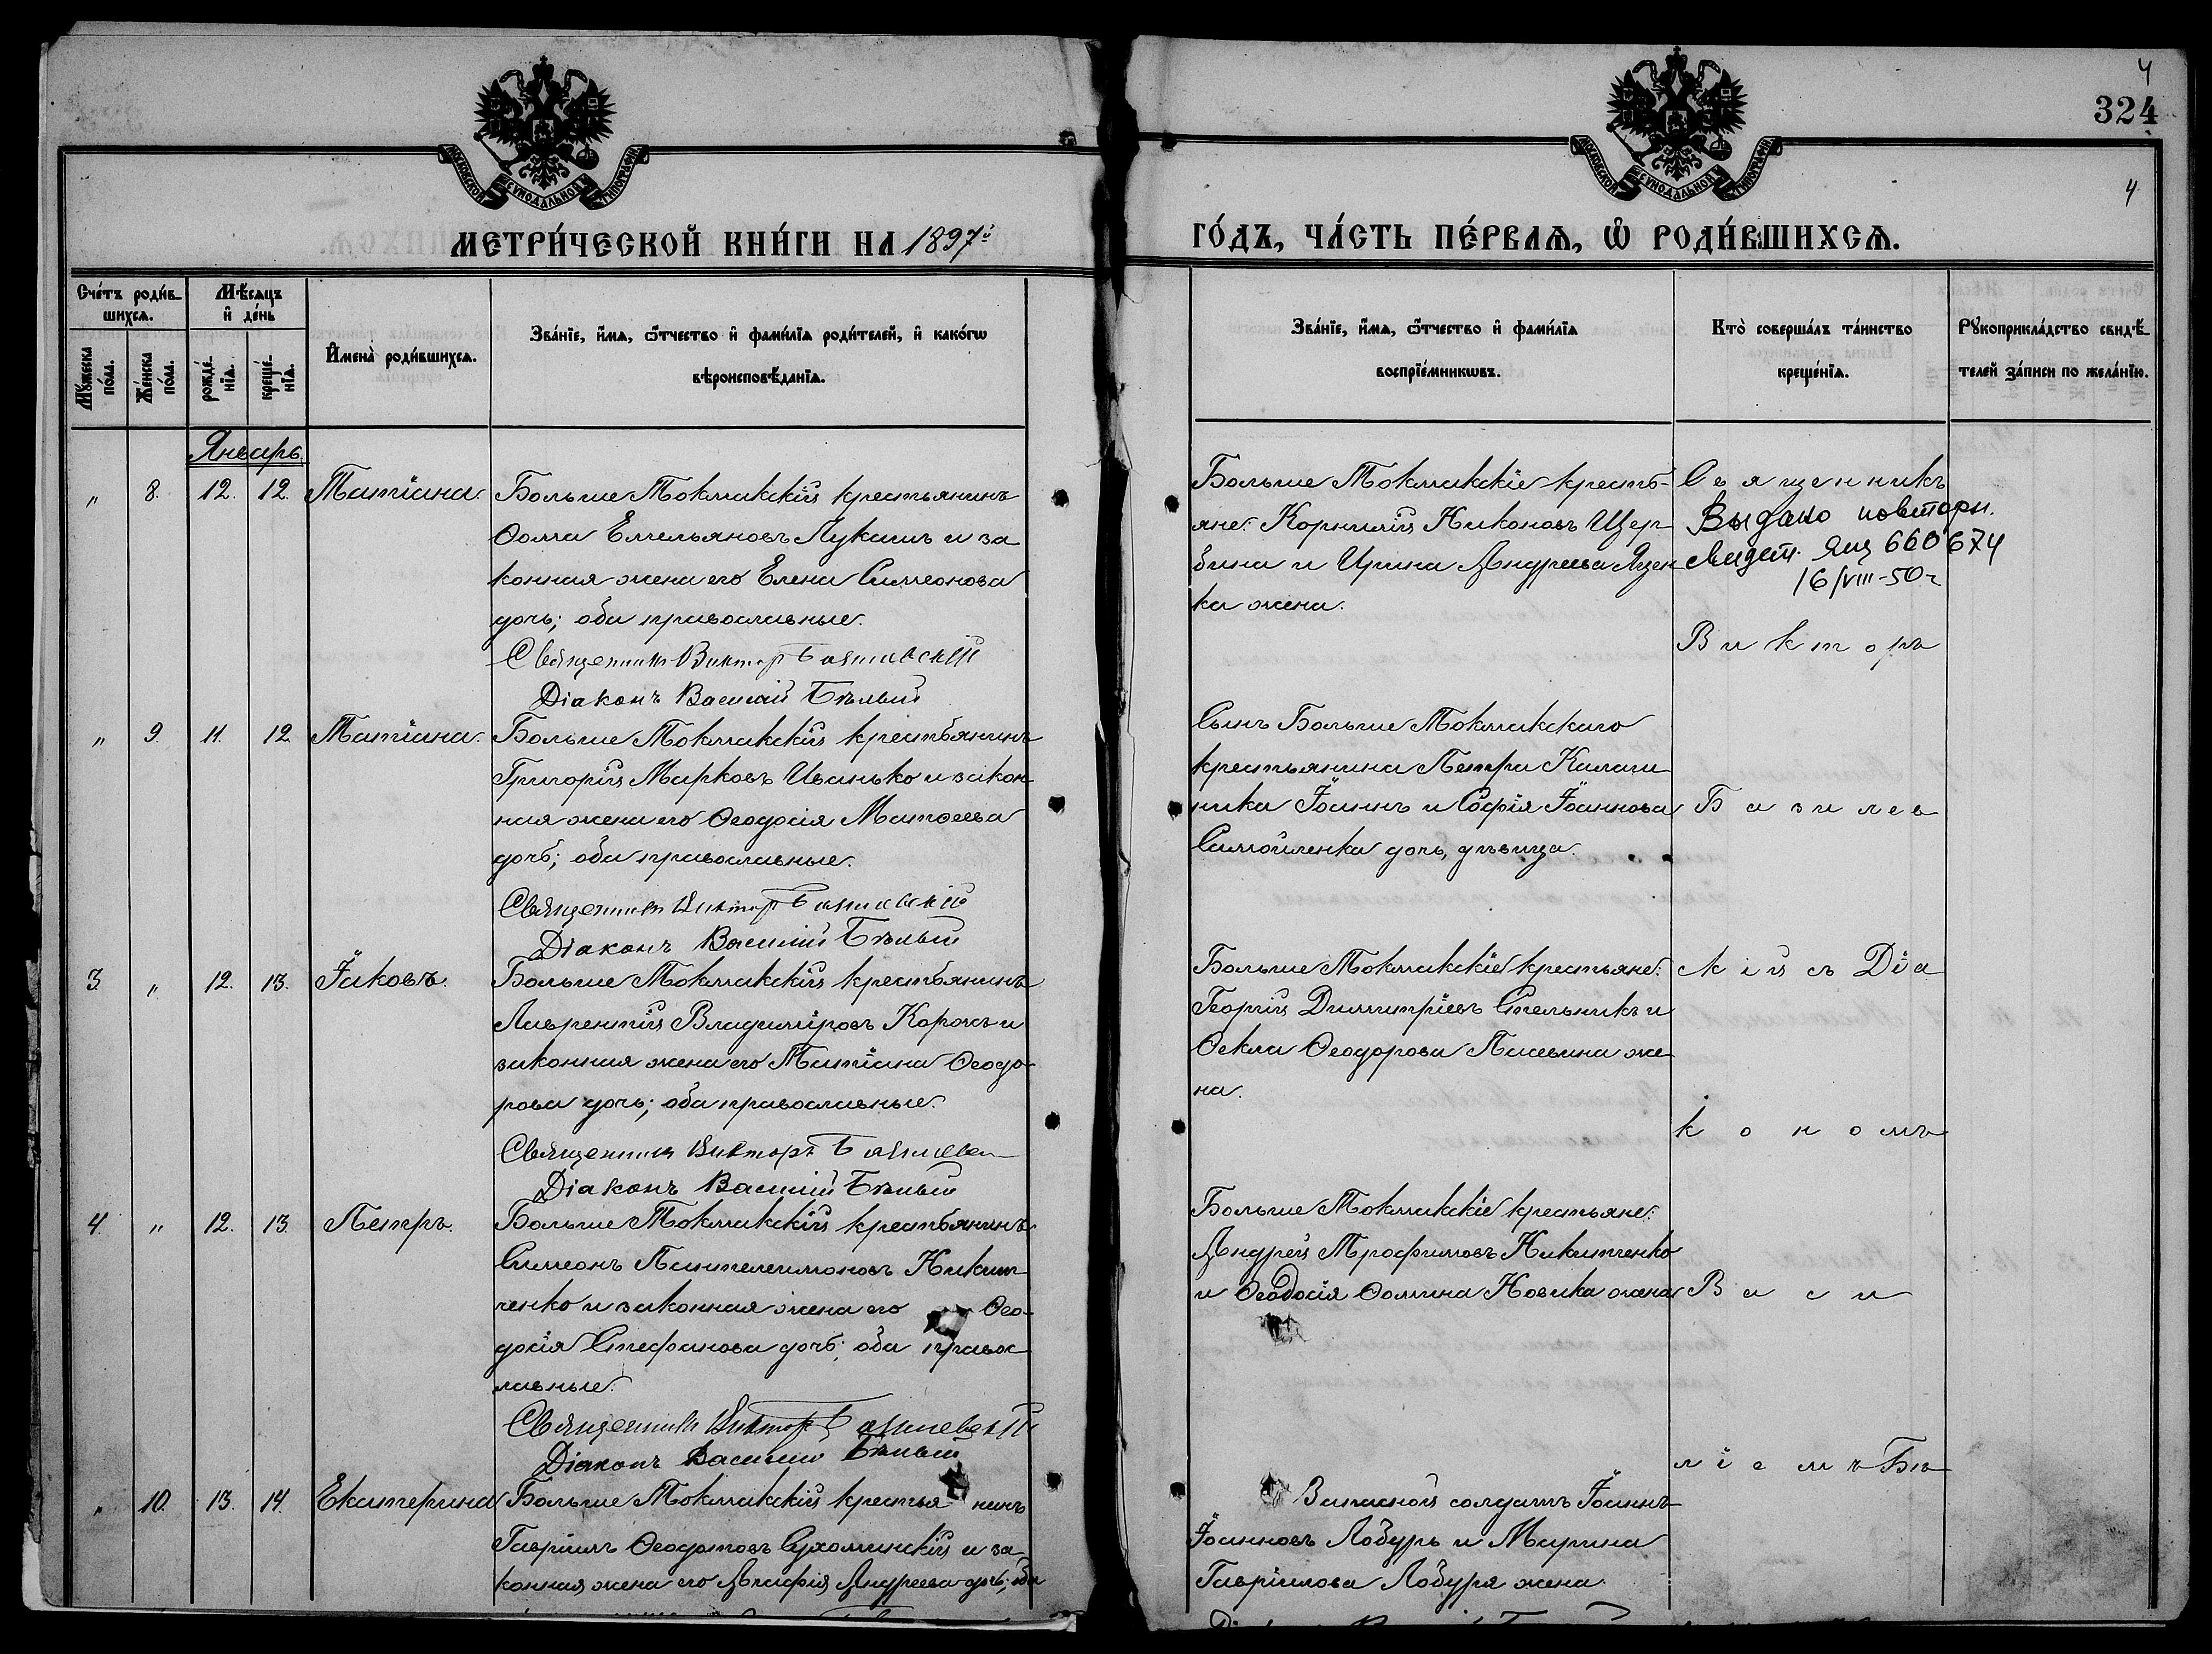 4
324
4
МОСКОВСКОЙ СѴНОДАЛЬНОЙ ТИПОГРАФІИ
МОСКОВСКОЙ СѴНОДАЛЬНОЙ ТИПОГРАФІИ
МЕТРИ́ЧЕСКОЙ КНИ́ГИ НА 1897й
ГО́ДЪ, ЧА́СТЬ ПЕ́РВАѦ, Ѡ҆ РОДИ́ВШИХСѦ.
Сче́тъ роди́в-
шихсѧ.
Мꙋ́жеска
по́ла.
Же́нска
по́ла.
Мѣ́сѧцъ
и҆ де́нь
рожде́-
нїѧ.
креще́-
нїѧ.
И҆мена̀ роди́вшихсѧ.
Зва́нїе, и҆́мѧ, ѻ҆́тчество и҆ фами́лїѧ роди́телей, и҆ како́гѡ
вѣроисповѣ́данїѧ.
Зва́нїе, и҆́мѧ, ѻ҆́тчество и҆ фами́лїѧ
воспрїе́мникѡвъ.
Кто̀ соверша́лъ та́инство
креще́нїѧ.
Рꙋкоприкла́дство свидѣ́-
телей за́писи по жела́нїю.
Январь.
„ 8. 12. 12. Татіана.
Больше Токмакскій крестьянинъ
Ѳома Емельяновъ Лукашъ и за
конная жена его Елена Симеонова
дочь; оба православные.
Священникъ Викторъ Базилевскій
Діаконъ Василій Бѣлый
Больше Токмакскіе кресть-
яне: Корнилій Никоновъ Щер-
бина и Ирина Андреева Яцен
ка жена.
Священникъ
Выдано повторн.
свидет. ЯЦ 660674
16/VIII-50 г
Викторъ
„ 9. 11. 12. Татіана.
Больше Токмакскій крестьянинъ
Григорій Марковъ Иванько и закон
ная жена его Ѳеодосія Матѳеева
дочь; оба православные.
Священникъ Викторъ Базилевскій
Діаконъ Василій Бѣлый
Сынъ Больше Токмакскаго
крестьянина Петра Калаш
ника Іоаннъ и Софія Іоаннова
Самойленка дочь, дѣвица.
Базилев
3 „ 12. 13. Іаковъ.
Больше Токмакскій крестьянинъ
Лаврентій Владиміровъ Корохъ и
законная жена его Татіана Ѳеодо-
рова дочь; оба православные.
Священникъ Викторъ Базилевс
Діаконъ Василій Бѣлый
Больше Токмакскіе крестьяне:
Георгій Димитріевъ Стельникъ и
Ѳекла Ѳеодорова Пасьвина же
на.
скій съ Діа
кономъ
4. „ 12. 13. Петръ.
Больше Токмакскій крестьянинъ
Симеонъ Пантелеимоновъ Никит
ченко и законная жена его Ѳео-
досія Стефанова дочь; оба правос
лавные.
Священникъ Викторъ Базилевскій
Діаконъ Василій Бѣлый
Больше Токмакскіе крестьяне:
Андрей Трофимовъ Никитченко
и Ѳеодосія Ѳомина Новика жена
Васи
ліемъ Бѣ
„ 10. 13. 14. Екатерина
Больше Токмакскій крестьянинъ
Гавріилъ Ѳеодотовъ Сухоминскій и за
конная жена его Агафія Андреева дочь; оба
Запасной солдатъ Іоаннъ
Іоанновъ Лобуръ и Марина
Гавріилова Лобуря жена